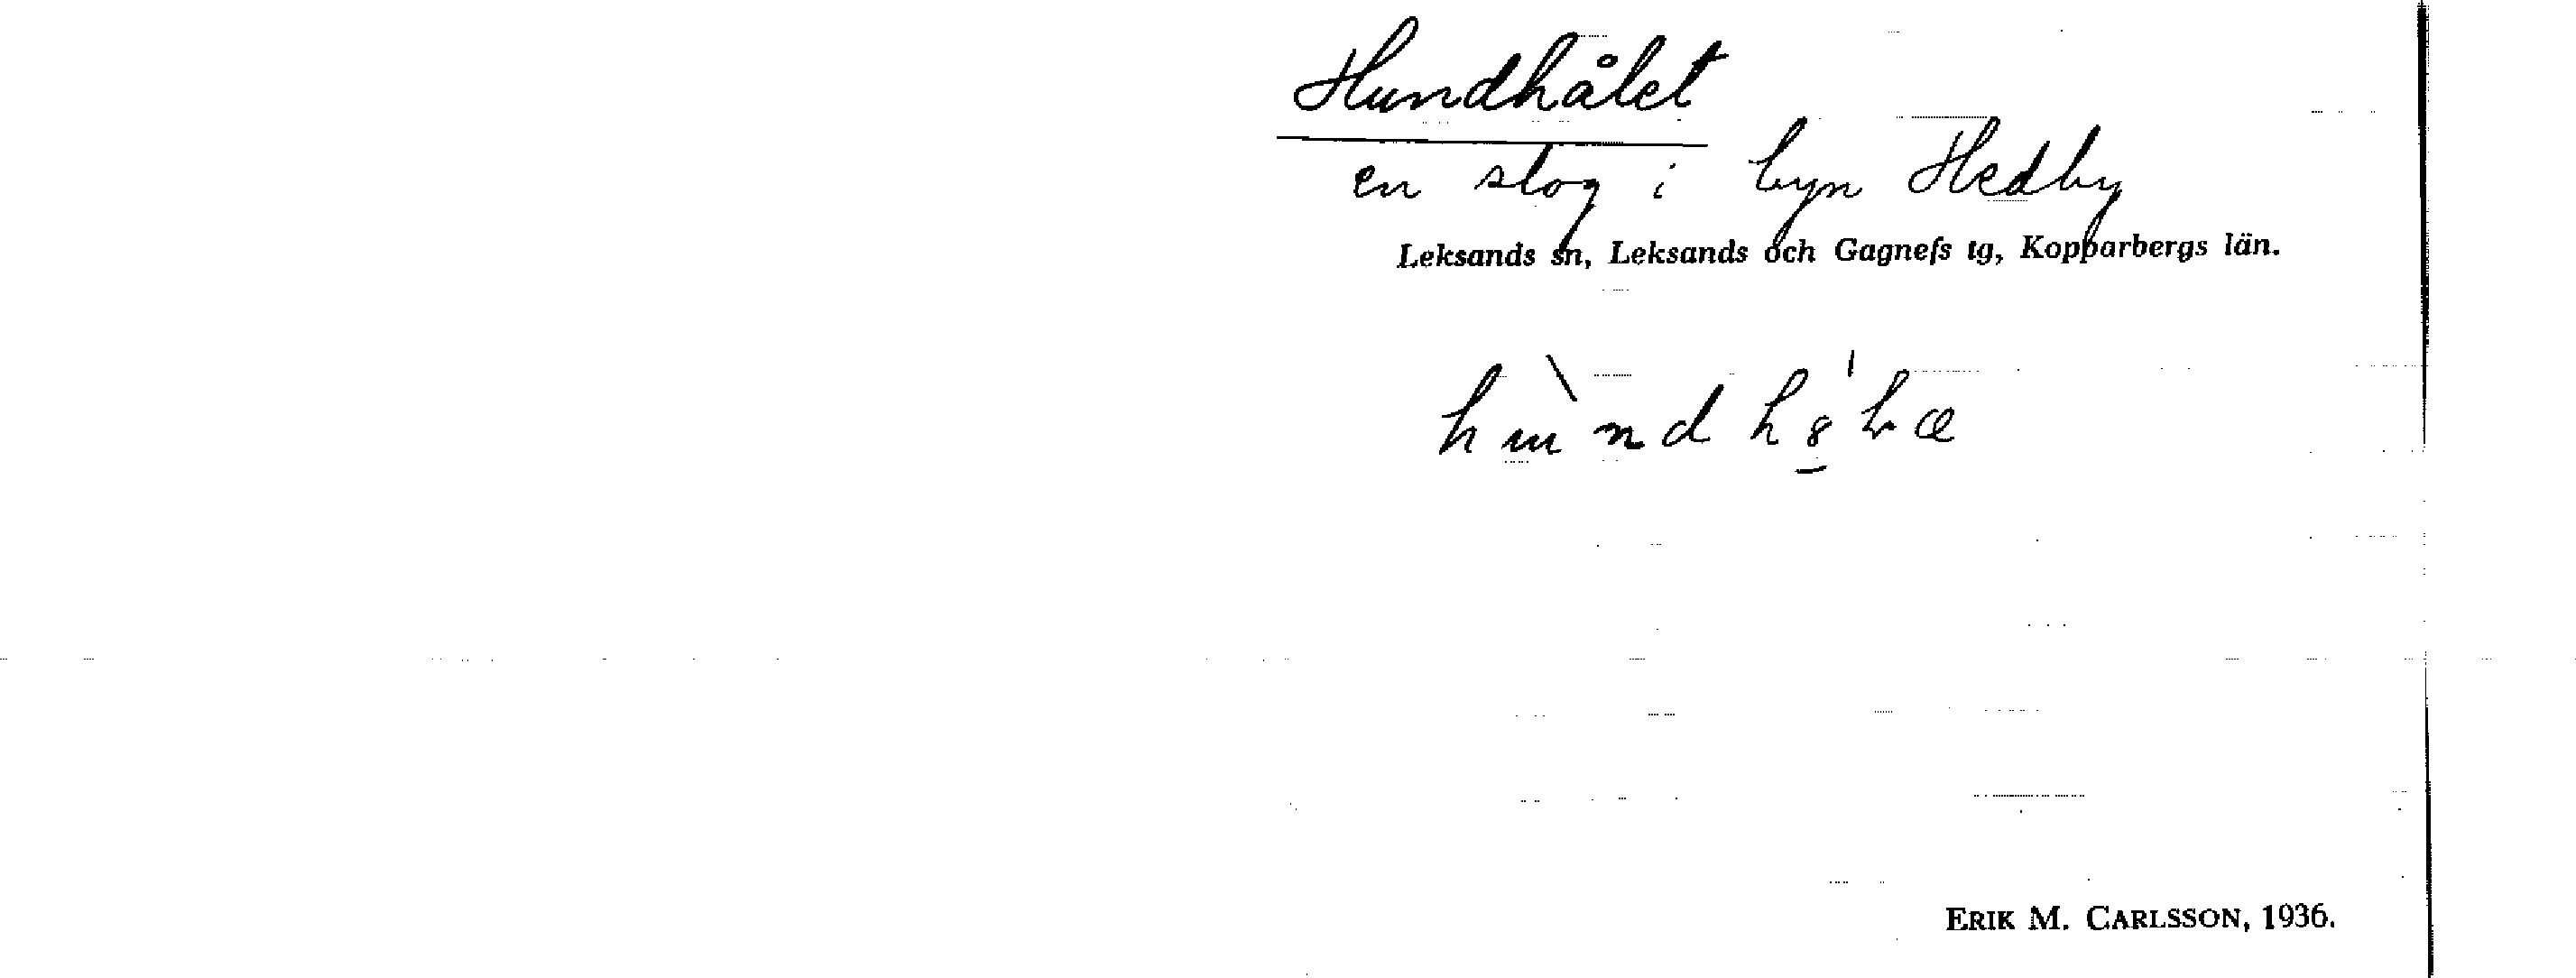 Hundhålet
en slog i byn Hedby
Leksands sn, Leksands och Gagnefs tg, Kopparbergs län.
ERIK M. CARLSSON, 1936.